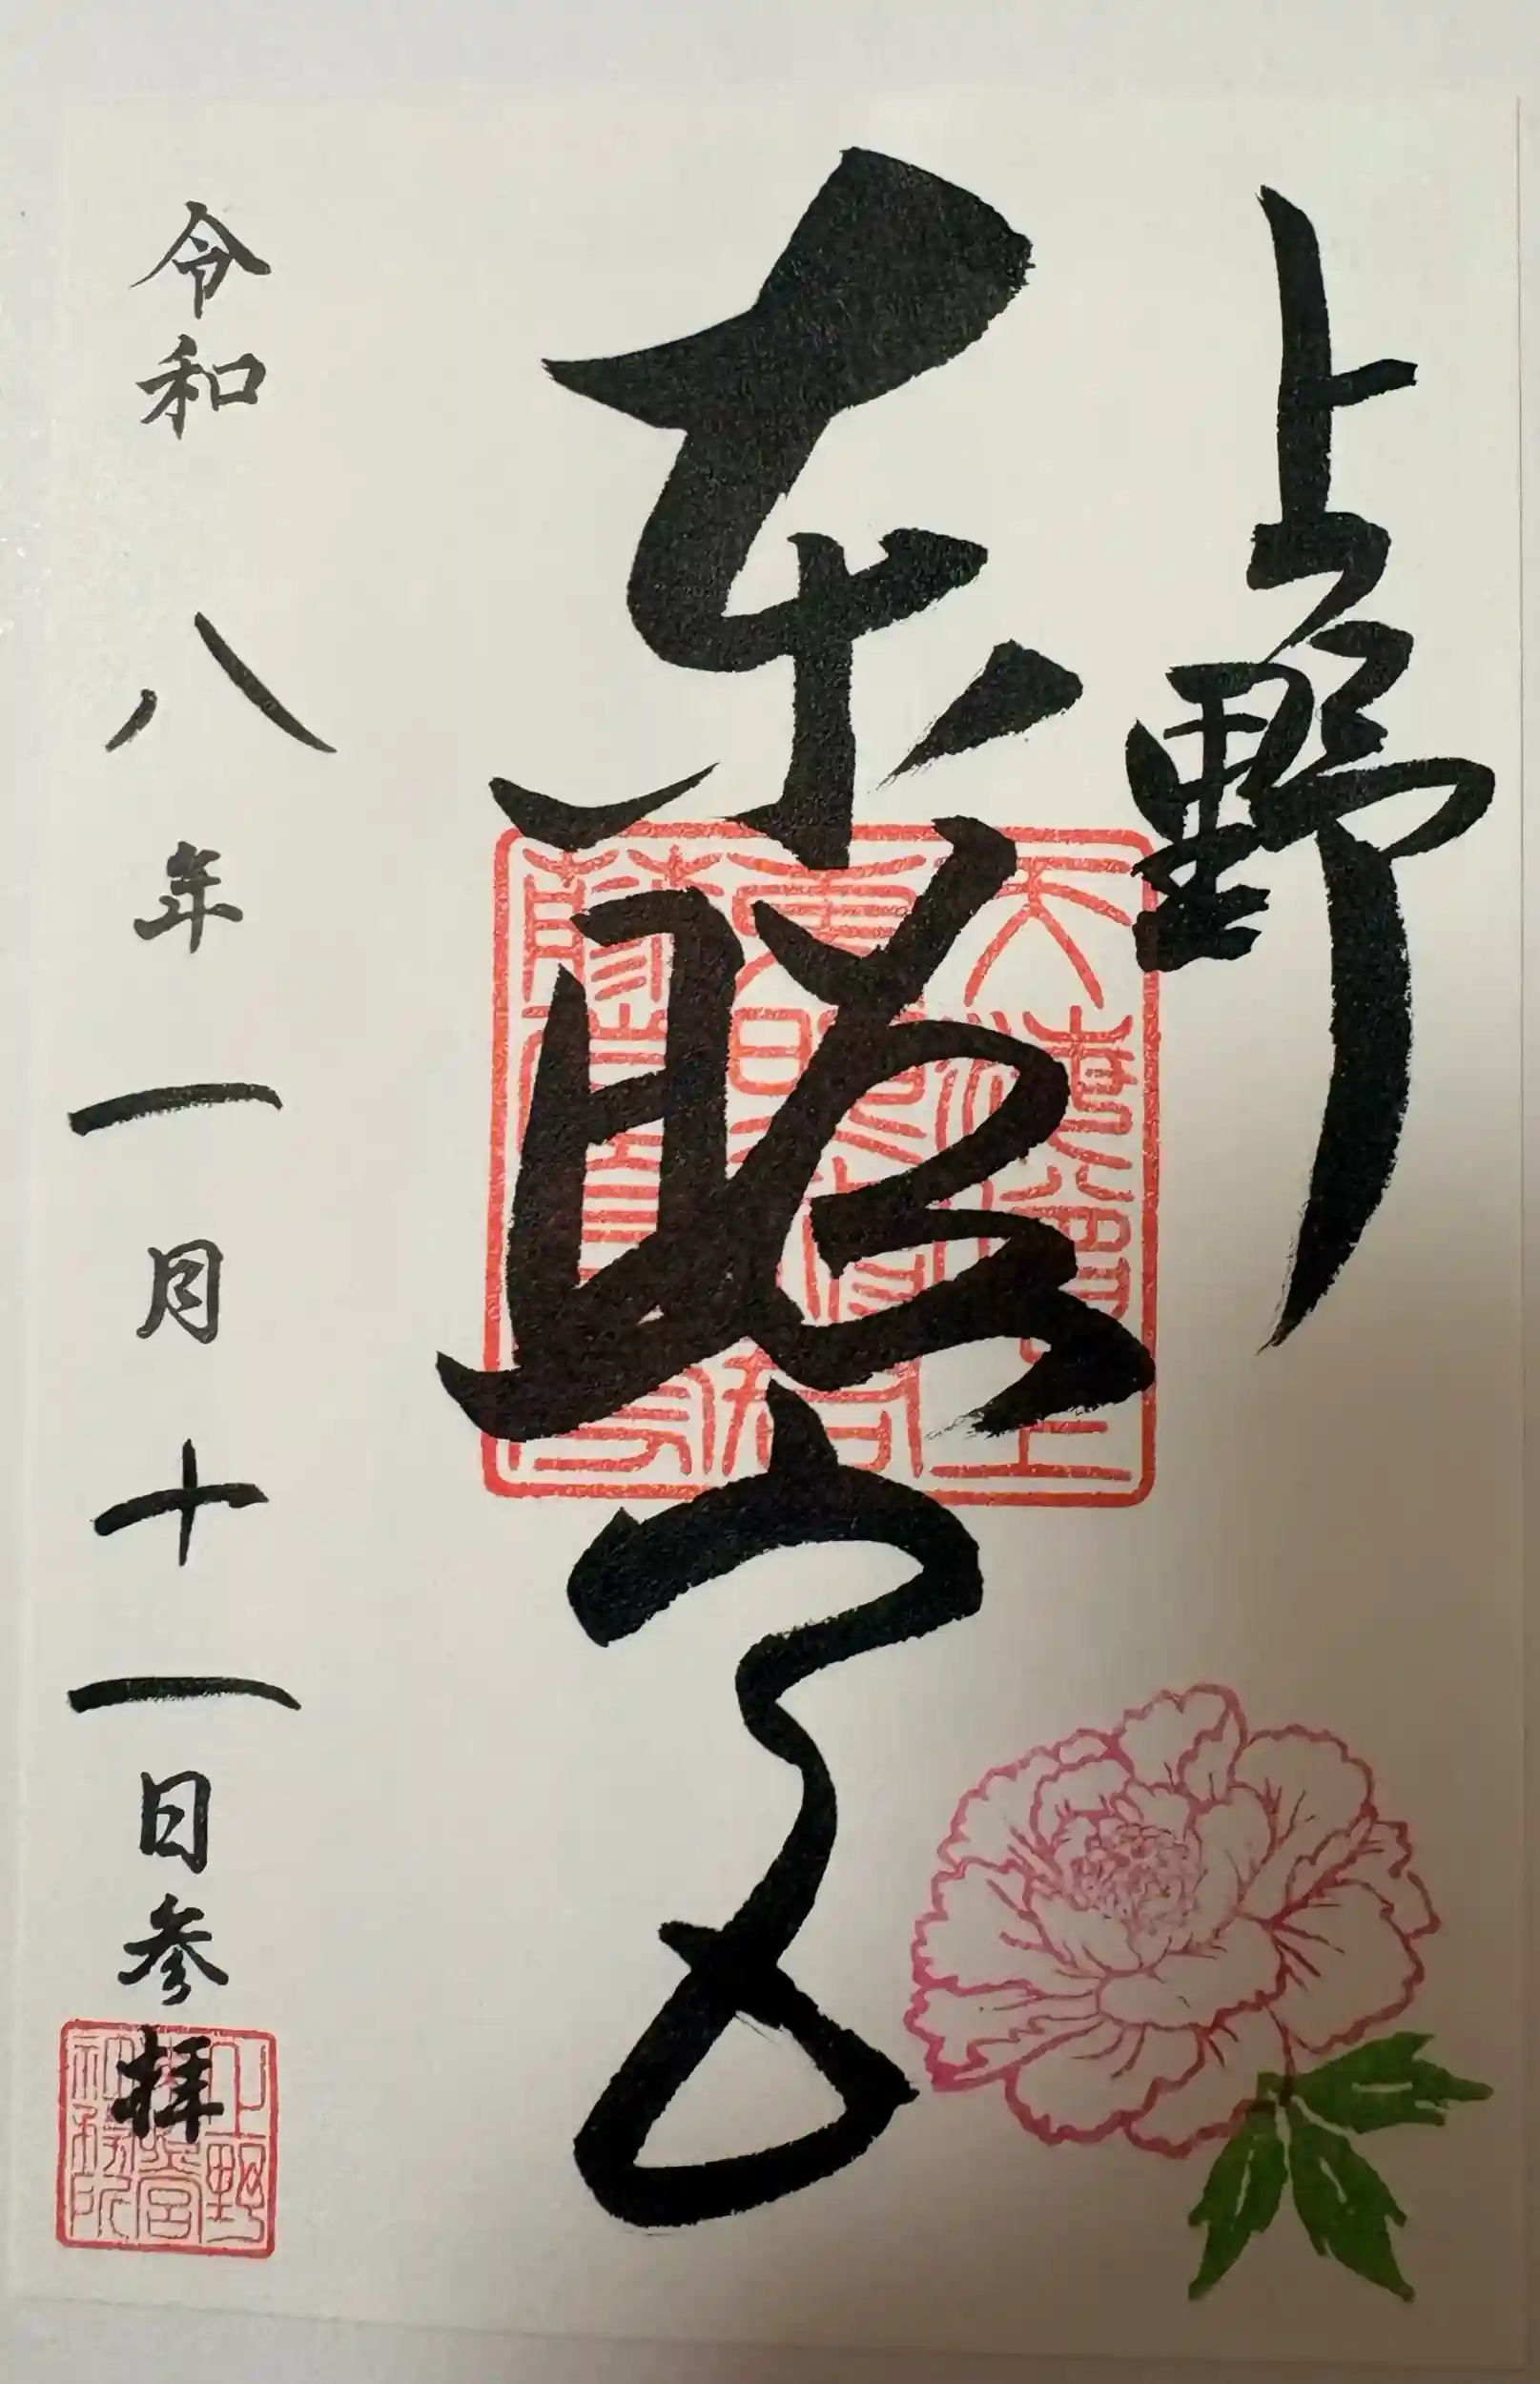 上野
東照宮
令和八年一月十一日参拝
上野
東照宮
社務所